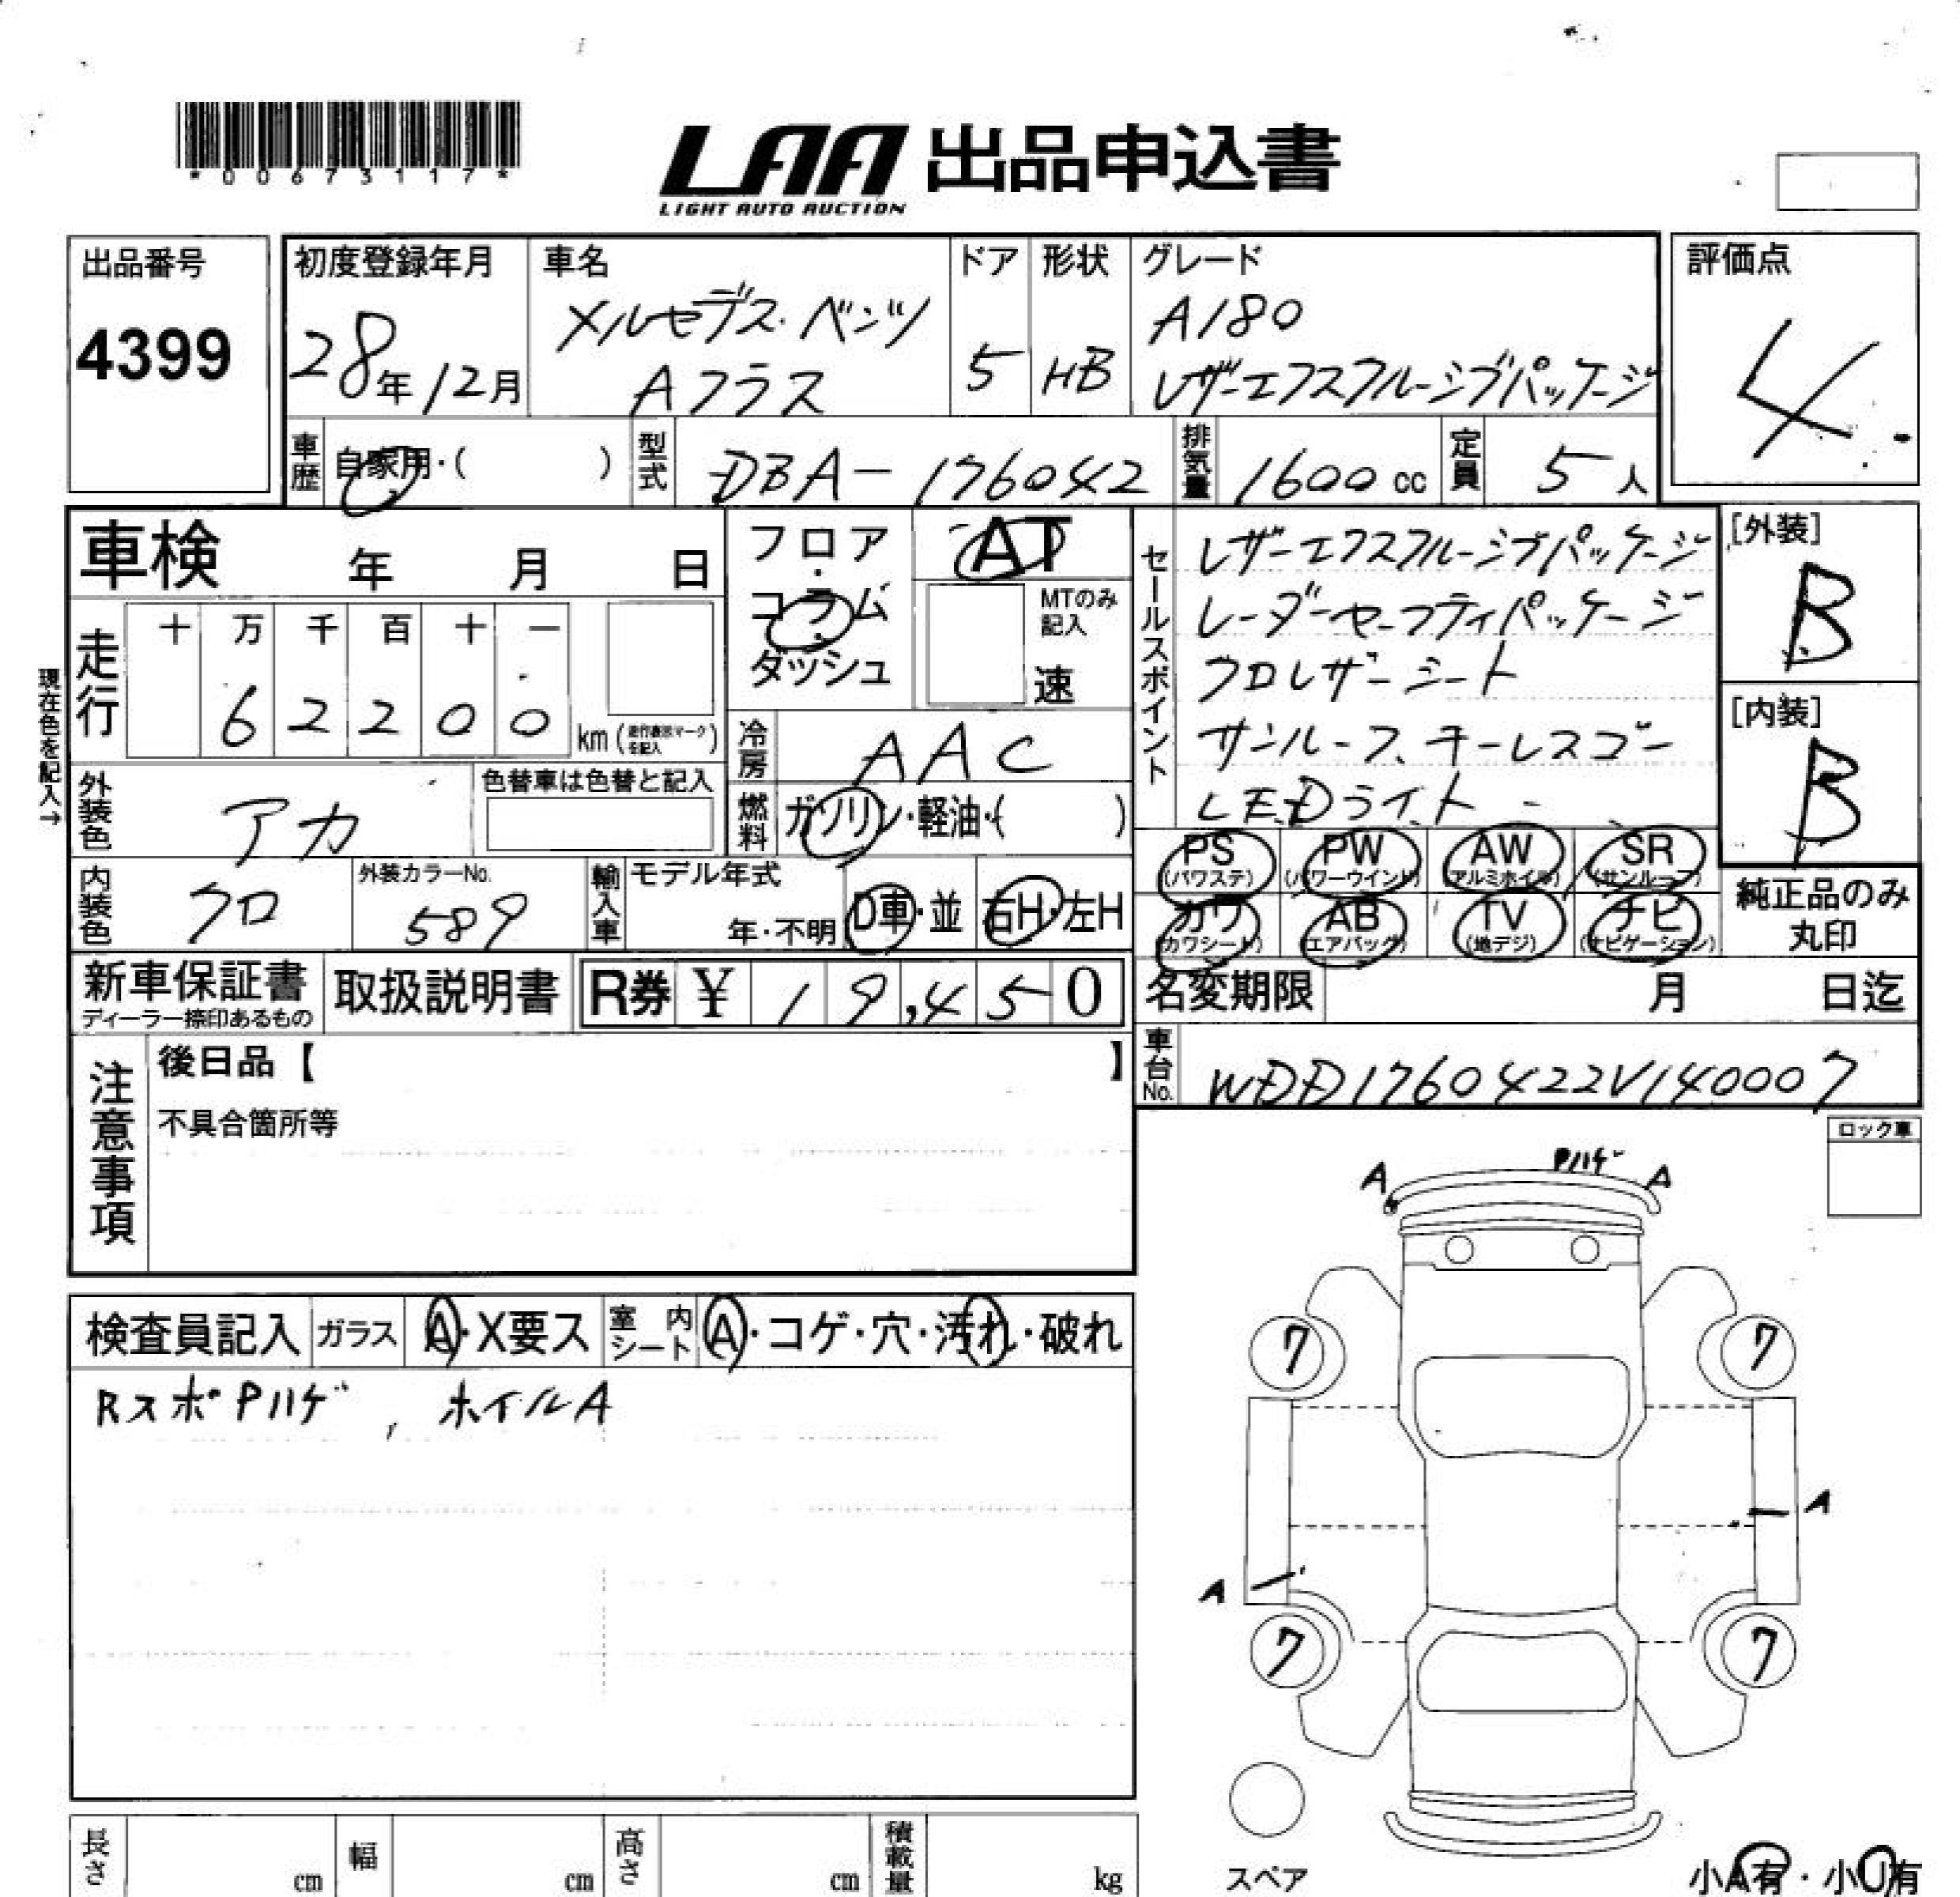 *00673117*
LAA 出品申込書
LIGHT AUTO AUCTION
出品番号
4399
初度登録年月
28年12月
車名
メルセデス・ベンツ
Aクラス
ドア
5
形状
HB
グレード
A180
レザーエクスクルーシブパッケージ
評価点
4
車歴
自家用・( )
型式
DBA-176042
排気量
1600cc
定員
5人
車検 年 月 日
フロア・コラム・ダッシュ
AT
MTのみ記入
速
セールスポイント
レザーエクスクルーシブパッケージ
レーダーセーフティパッケージ
クロレザーシート
サンルーフ、キーレスゴー
LEDライト
[外装]
B
[内装]
B
現在色を記入→
走行
十 万 千 百 十 一
6 2 2 0 0
km(走行表示マークを記入)
冷房
AAC
外装色
アカ
色替車は色替と記入
燃料
ガソリン・軽油・( )
内装色
クロ
外装カラーNo.
589
輸入車
モデル年式
年・不明
D車・並
右H・左H
PS (パワステ)
PW (パワーウインド)
AW (アルミホイル)
SR (サンルーフ)
カワ (カワシート)
AB (エアバッグ)
TV (地デジ)
ナビ (ナビゲーション)
純正品のみ
丸印
新車保証書
ディーラー捺印あるもの
取扱説明書
R券 ¥ 19,450
名変期限 月 日迄
車台No.
WDD1760422V140007
注意事項
後日品【 】
不具合箇所等
ロック車
検査員記入
ガラス A・X要ス
室内シート A・コゲ・穴・汚れ・破れ
RスポPハゲ, ホイルA
A
Pハゲ
A
7
7
A
A
7
7
スペア
小A有・小U有
長さ cm
幅 cm
高さ cm
積載量 kg